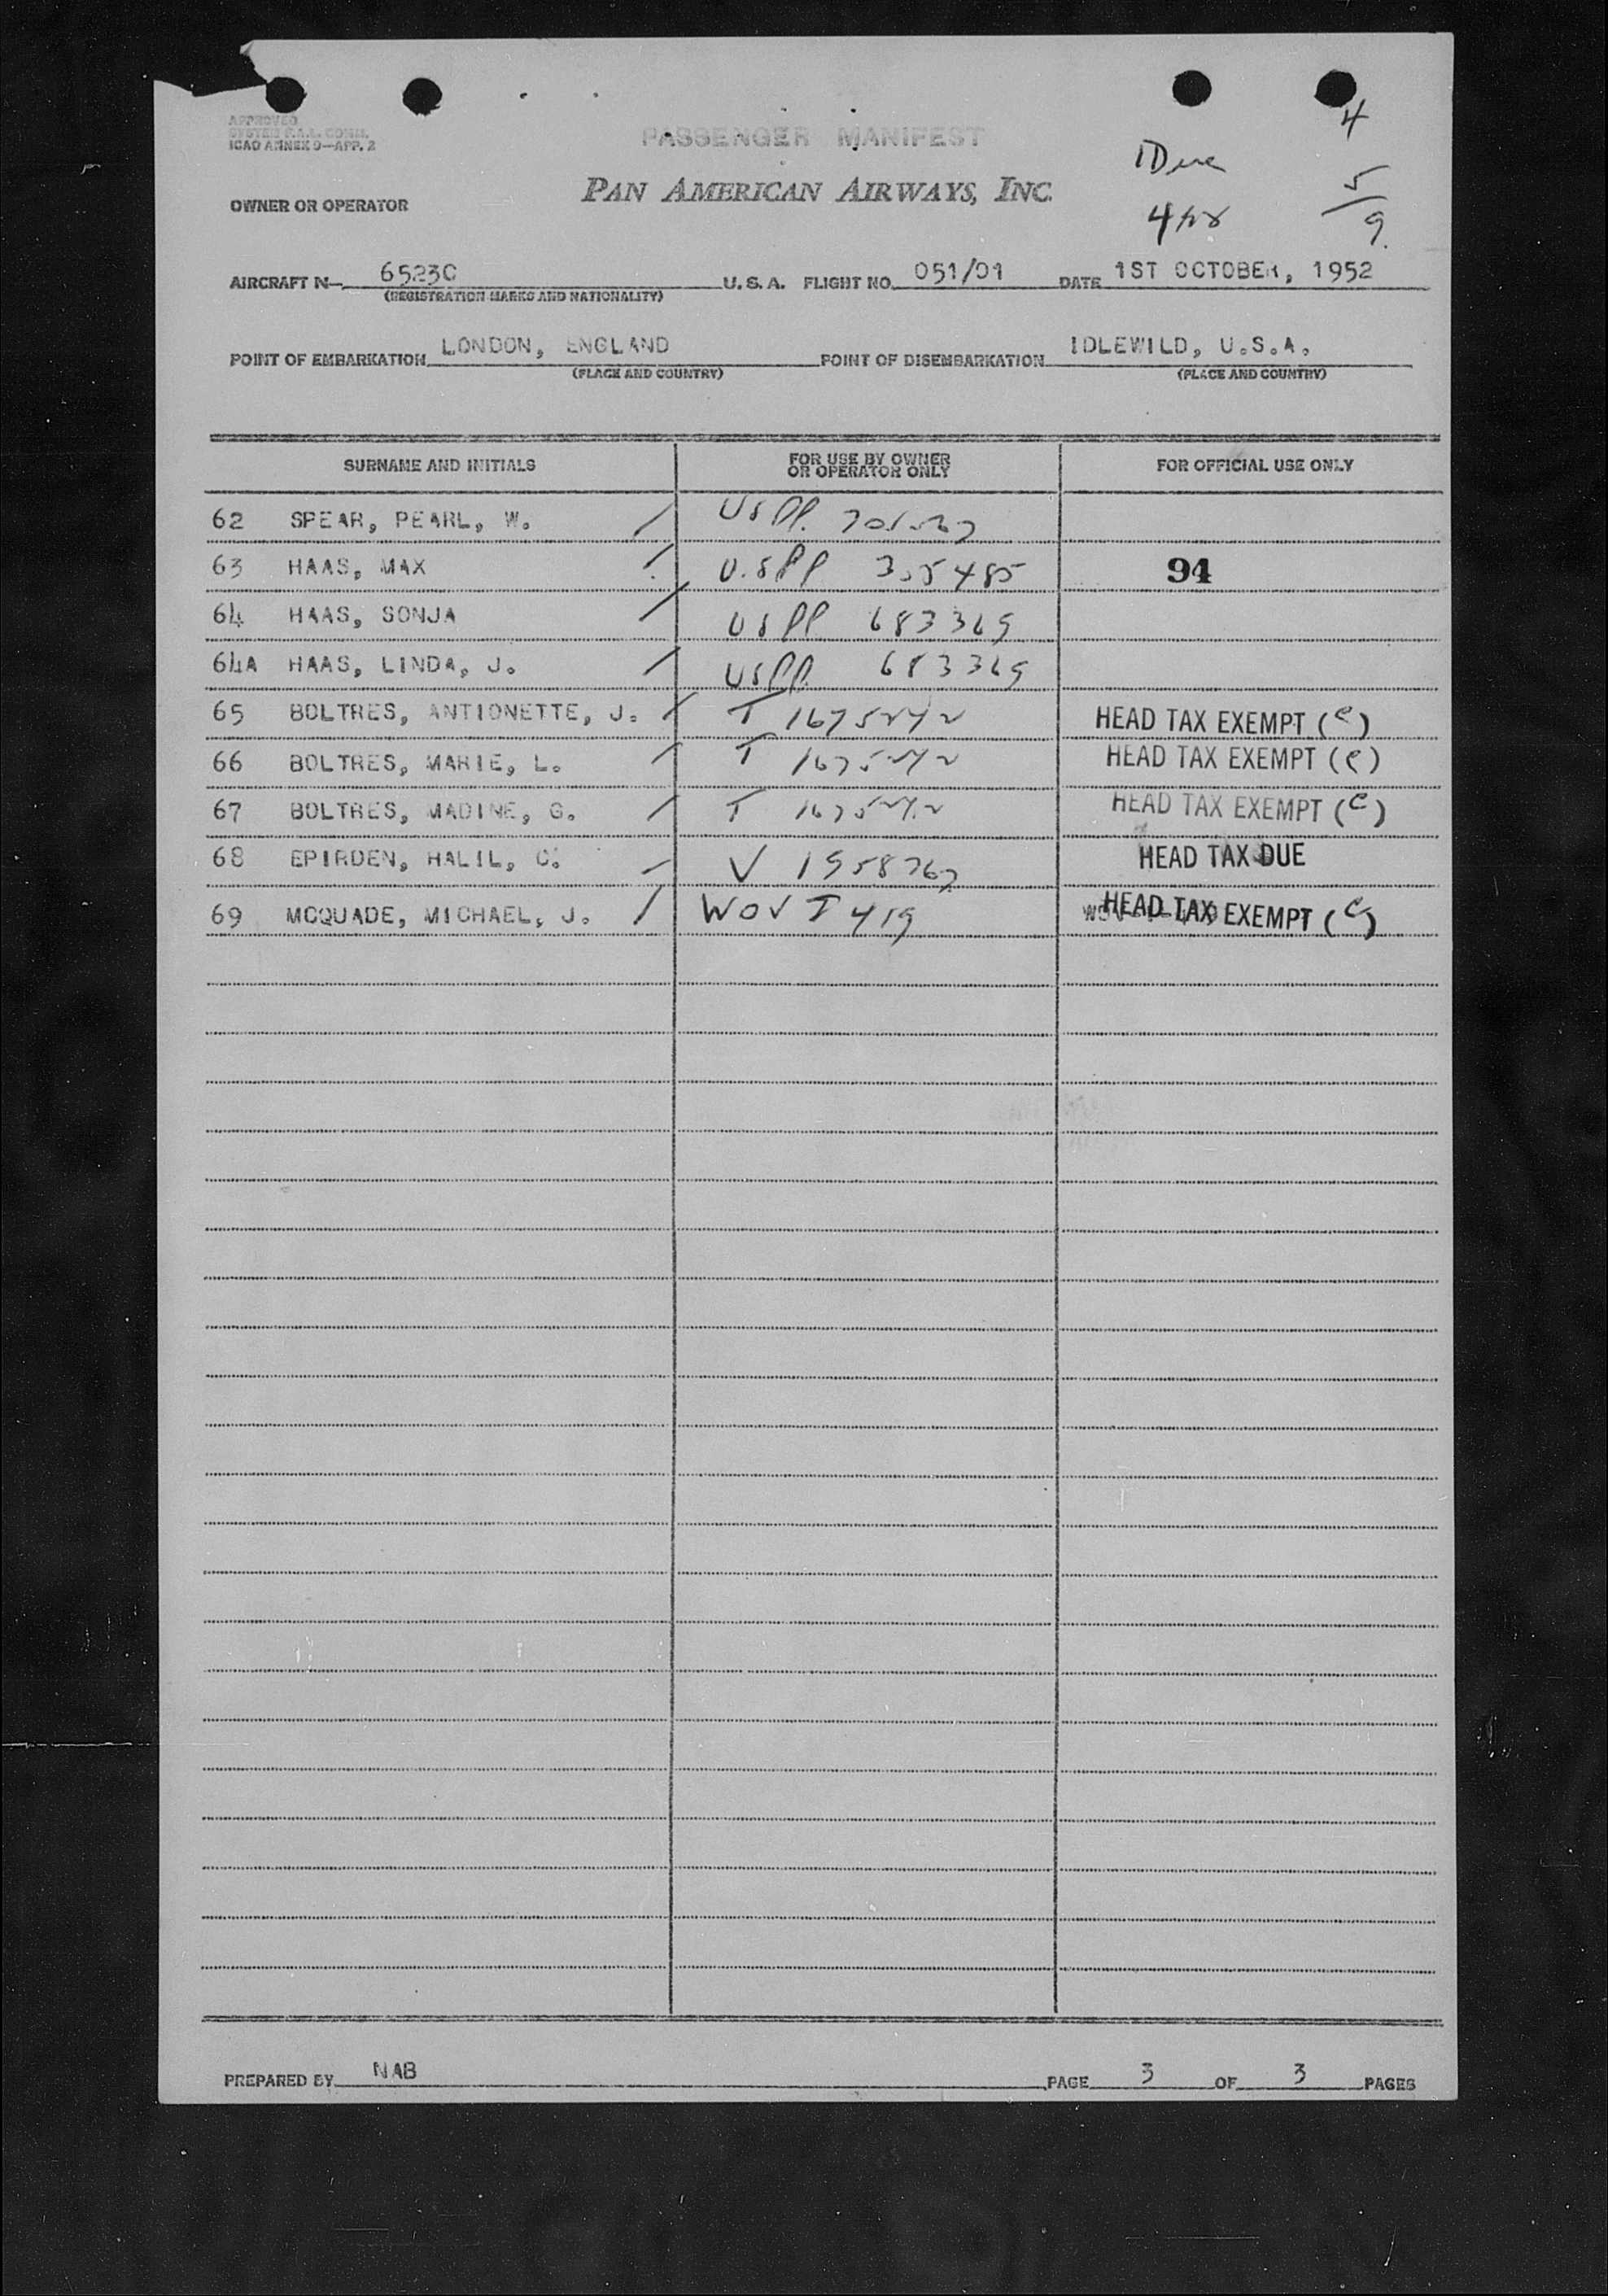 4
APPROVED
SYSTEM P.A.A. COMM.
ICAO ANNEX 9—APP. 2
PASSENGER MANIFEST
1 Due
5/9
OWNER OR OPERATOR PAN AMERICAN AIRWAYS, INC.
4
AIRCRAFT N—65230 U.S.A. FLIGHT NO. 051/01 DATE 1ST OCTOBER, 1952
(REGISTRATION MARKS AND NATIONALITY)
POINT OF EMBARKATION LONDON, ENGLAND POINT OF DISEMBARKATION IDLEWILD, U.S.A.
(PLACE AND COUNTRY) (PLACE AND COUNTRY)
SURNAME AND INITIALS FOR USE BY OWNER OR OPERATOR ONLY FOR OFFICIAL USE ONLY
62 SPEAR, PEARL, W. / USPP.
63 HAAS, MAX / U.SPP 355485 94
64 HAAS, SONJA / USPP 683369
64A HAAS, LINDA, J. / USPP. 683369
65 BOLTRES, ANTIONETTE, J. / T 1675242 HEAD TAX EXEMPT (e)
66 BOLTRES, MARIE, L. / T 1675242 HEAD TAX EXEMPT (e)
67 BOLTRES, MADINE, G. / T 1675242 HEAD TAX EXEMPT (e)
68 EPIRDEN, HALIL, C. / V 1958767 HEAD TAX DUE
69 MCQUADE, MICHAEL, J. / WOV I 419 HEAD TAX EXEMPT (e)
PREPARED BY NAB PAGE 3 OF 3 PAGES